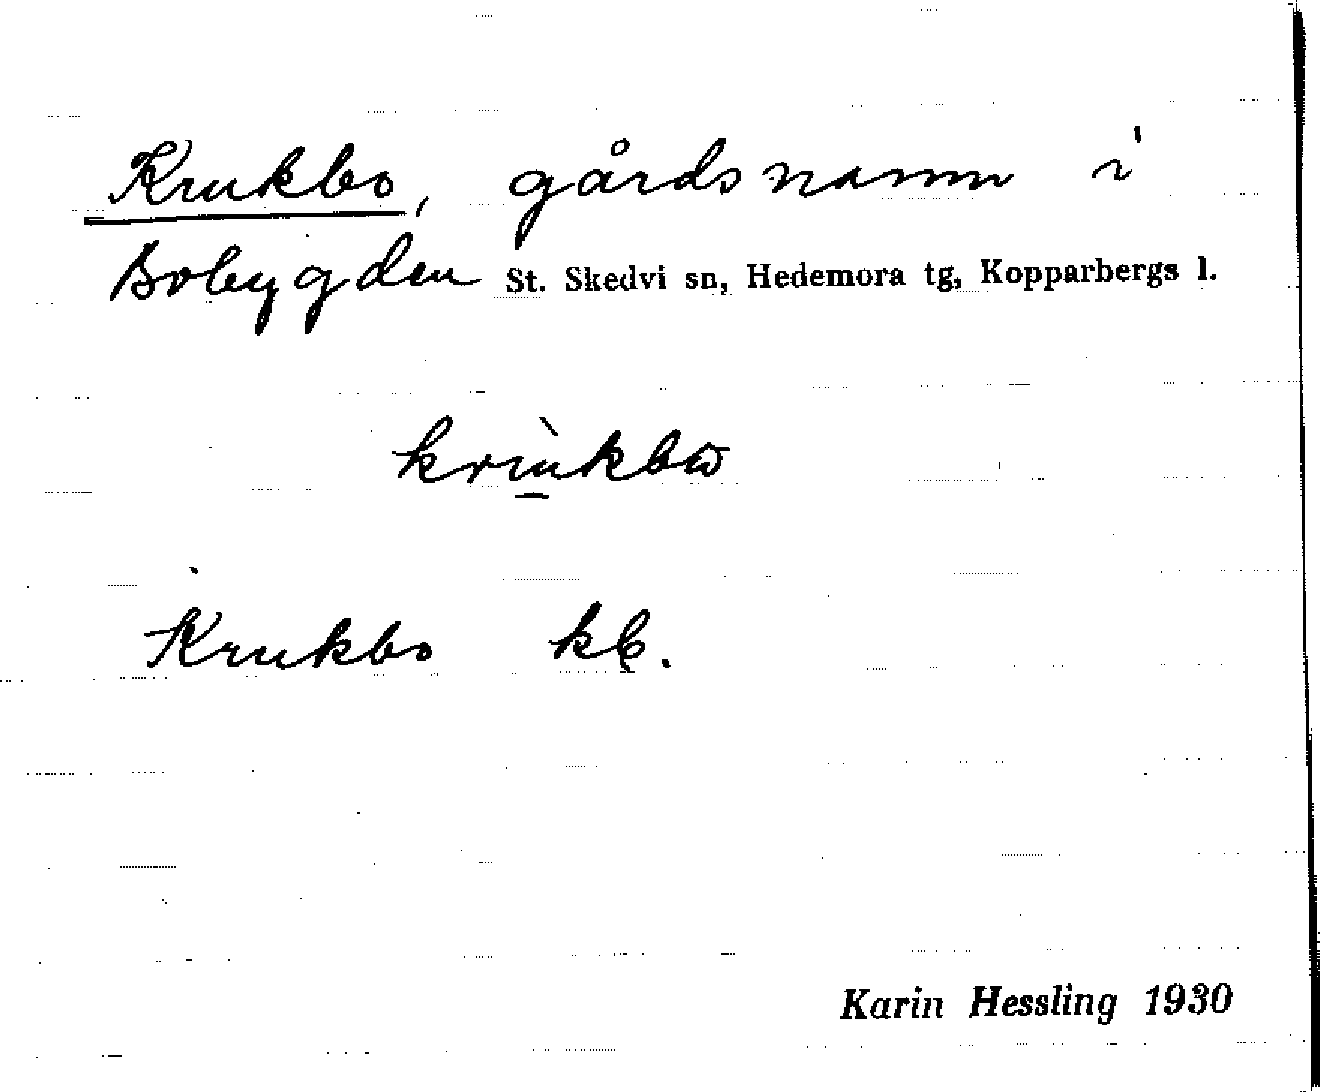 Krukbo, gårdsnamn i
Bobygden St. Skedvi sn, Hedemora tg, Kopparbergs l.
krùkbω
Krukbo kb.
Karin Hessling 1930